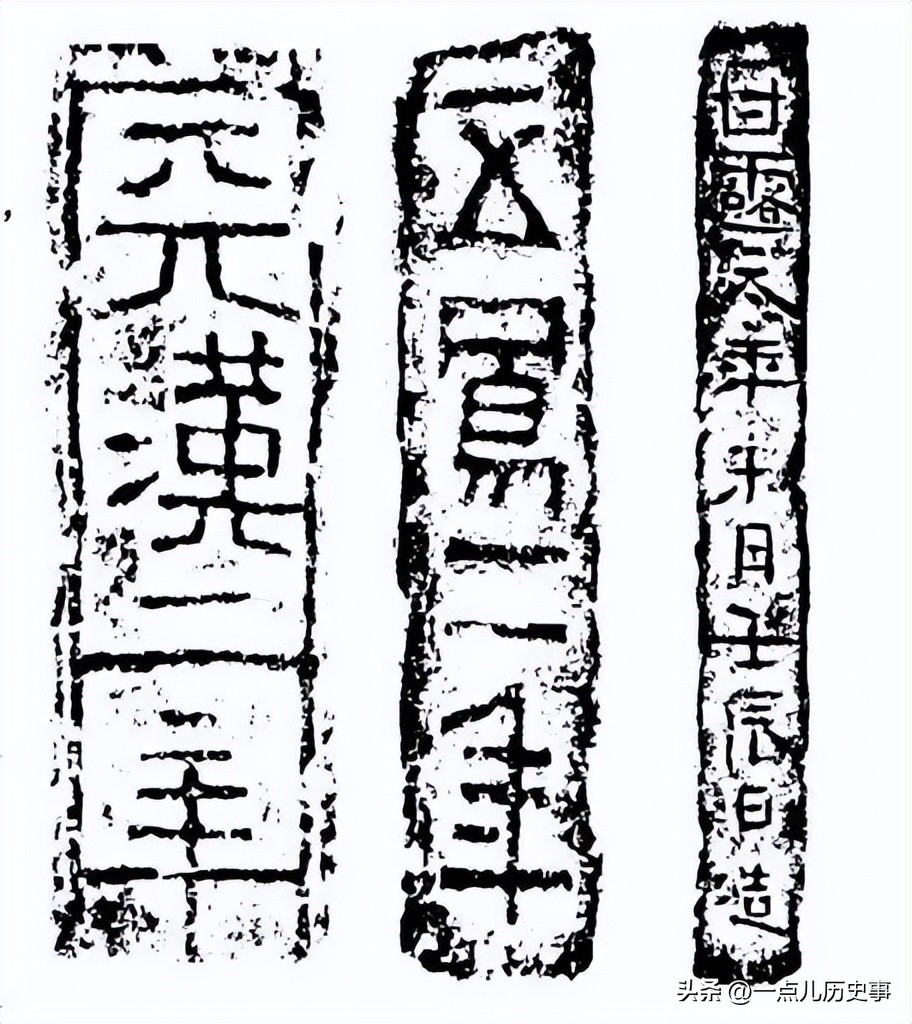 天漢二年
五鳳二年
甘露年月壬辰日造
头条 @一点儿历史事